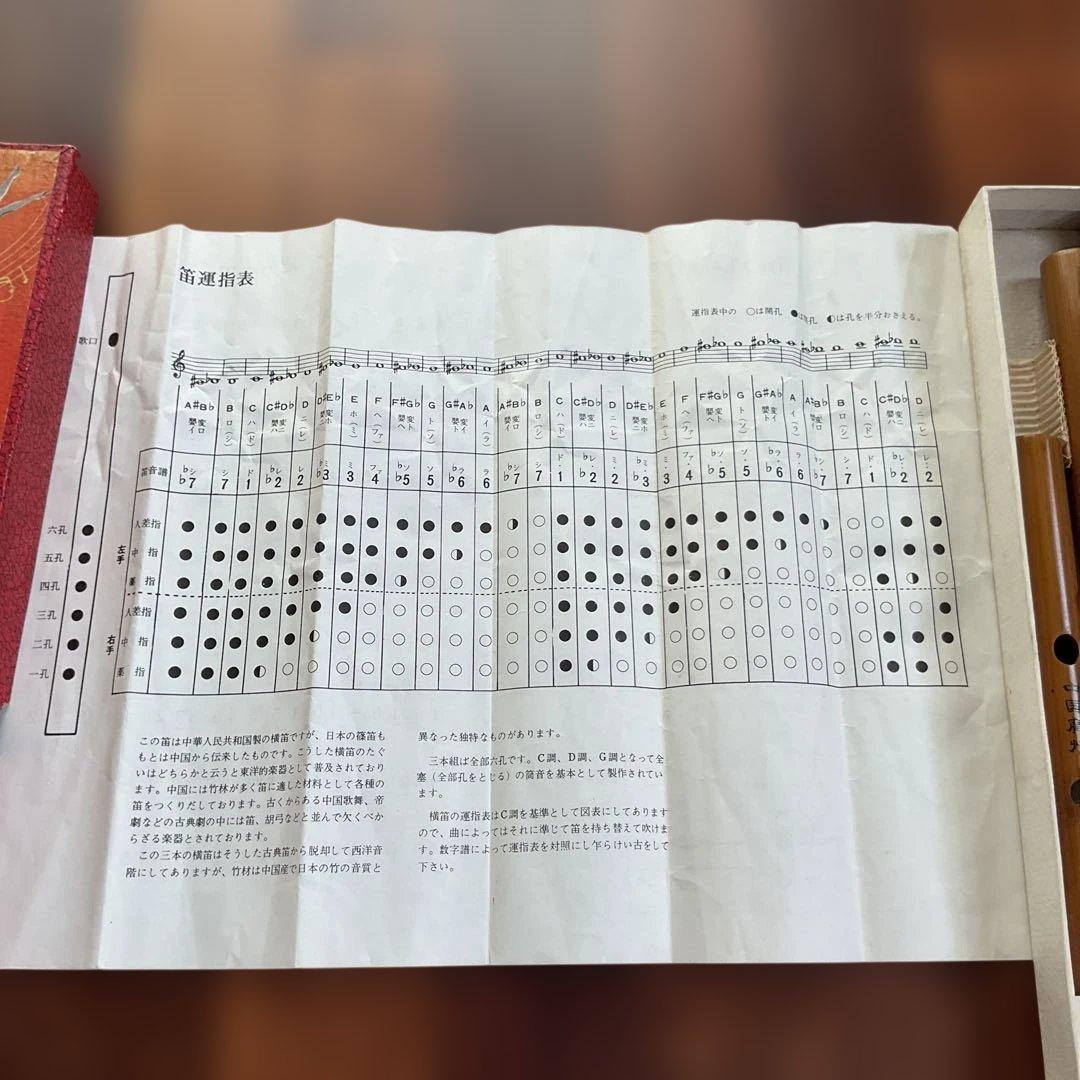 笛運指表
運指表中の ○は開孔 ●は閉孔 ◐は孔を半分おさえる。
歌口
A#B♭ B C C#D♭ D D#E♭ E F F#G♭ G G#A♭ A A#B♭ B C C#D♭ D D#E♭ E F F#G♭ G G#A♭ A A#B♭ B C C#D♭ D
嬰イ変ロ ロ(シ) ハ(ド) 嬰ハ変ニ ニ(レ) 嬰ニ変ホ ホ(ミ) ヘ(ファ) 嬰ヘ変ト ト(ソ) 嬰ト変イ イ(ラ) 嬰イ変ロ ロ(シ) ハ(ド) 嬰ハ変ニ ニ(レ) 嬰ニ変ホ ホ(ミ) ヘ(ファ) 嬰ヘ変ト ト(ソ) 嬰ト変イ イ(ラ) 嬰イ変ロ ロ(シ) ハ(ド) 嬰ハ変ニ ニ(レ)
笛音譜
♭シ シ ド ♭レ レ ♭ミ ミ ファ ♭ソ ソ ♭ラ ラ ♭シ シ ド ♭レ レ ♭ミ ミ ファ ♭ソ ソ ♭ラ ラ ♭シ シ ド ♭レ レ
♭7 7 1 ♭2 2 ♭3 3 4 ♭5 5 ♭6 6 ♭7 7 1 ♭2 2 ♭3 3 4 ♭5 5 ♭6 6 ♭7 7 1 ♭2 2
六孔 人差指
五孔 左手 中指
四孔 薬指
三孔 人差指
二孔 右手 中指
一孔 薬指
この笛は中華人民共和国製の横笛ですが、日本の篠笛も
もとは中国から伝来したものです。こうした横笛のたぐ
いはどちらかと云うと東洋的楽器として普及されており
ます。中国には竹林が多く笛に適した材料として各種の
笛をつくりだしております。古くからある中国歌舞、帝
劇などの古典劇の中には笛、胡弓などと並んで欠くべか
らざる楽器とされております。
この三本の横笛はそうした古典笛から脱却して西洋音
階にしてありますが、竹材は中国産で日本の竹の音質と
異なった独特なものがあります。
三本組は全部六孔です。C調、D調、G調となって全
塞(全部孔をとじる)の筒音を基本として製作されてい
ます。
横笛の運指表はC調を基準として図表にしてあります
ので、曲によってはそれに準じて笛を持ち替えて吹けま
す。数字譜によって運指表を対照にし乍らけい古をして
下さい。